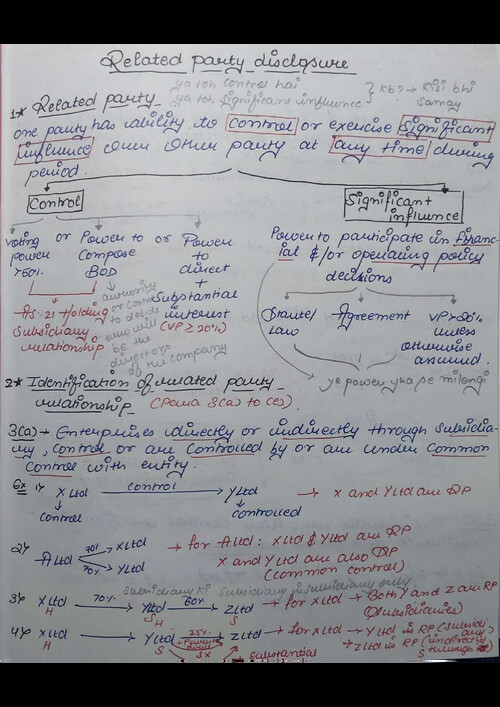 Related party disclosure
ya toh control hai
ya toh Significant influence } Kb? → Kisi bhi
samay
1* Related party
one party has ability to control or exercise Significant
influence over other party at any time during
period.
Control
Significant
influence
voting or Power to or Power
power Compose to
>50%. BOD direct
+
Substantial
interest
(VP ≥ 20%)
authority
or control
to decide
who will
be the
directors
of the company
AS-21 Holding
Subsidiary
relationship
Power to participate in financ-
ial &/or operating policy
decisions
Statute/ Agreement VP>20%
Law unless
otherwise
assumed.
ye power yha pe milongi
2* Identification of related party
relationship (Para 3(a) to (e))
3(a) - Enterprises directly or indirectly through subsidia-
ry, control or are controlled by or are under common
control with entity.
Ex 1) X Ltd control → Y Ltd → X and Y Ltd are RP
control controlled
2) A Ltd 70% X Ltd → for A Ltd : X Ltd & Y Ltd are RP
70% Y Ltd X and Y Ltd are also RP
(common control)
Subsidiary ki subsidiary is subsidiary only.
3) X Ltd 70% → Y Ltd 60% → Z Ltd → for X Ltd → Both Y and Z are RP
H S H S (Subsidiaries)
4) X Ltd → Y Ltd 25% → Z Ltd → for X Ltd → Y Ltd is RP (Subsidi
H S ary)
→ Z Ltd is RP (indirectly
through
Substantial